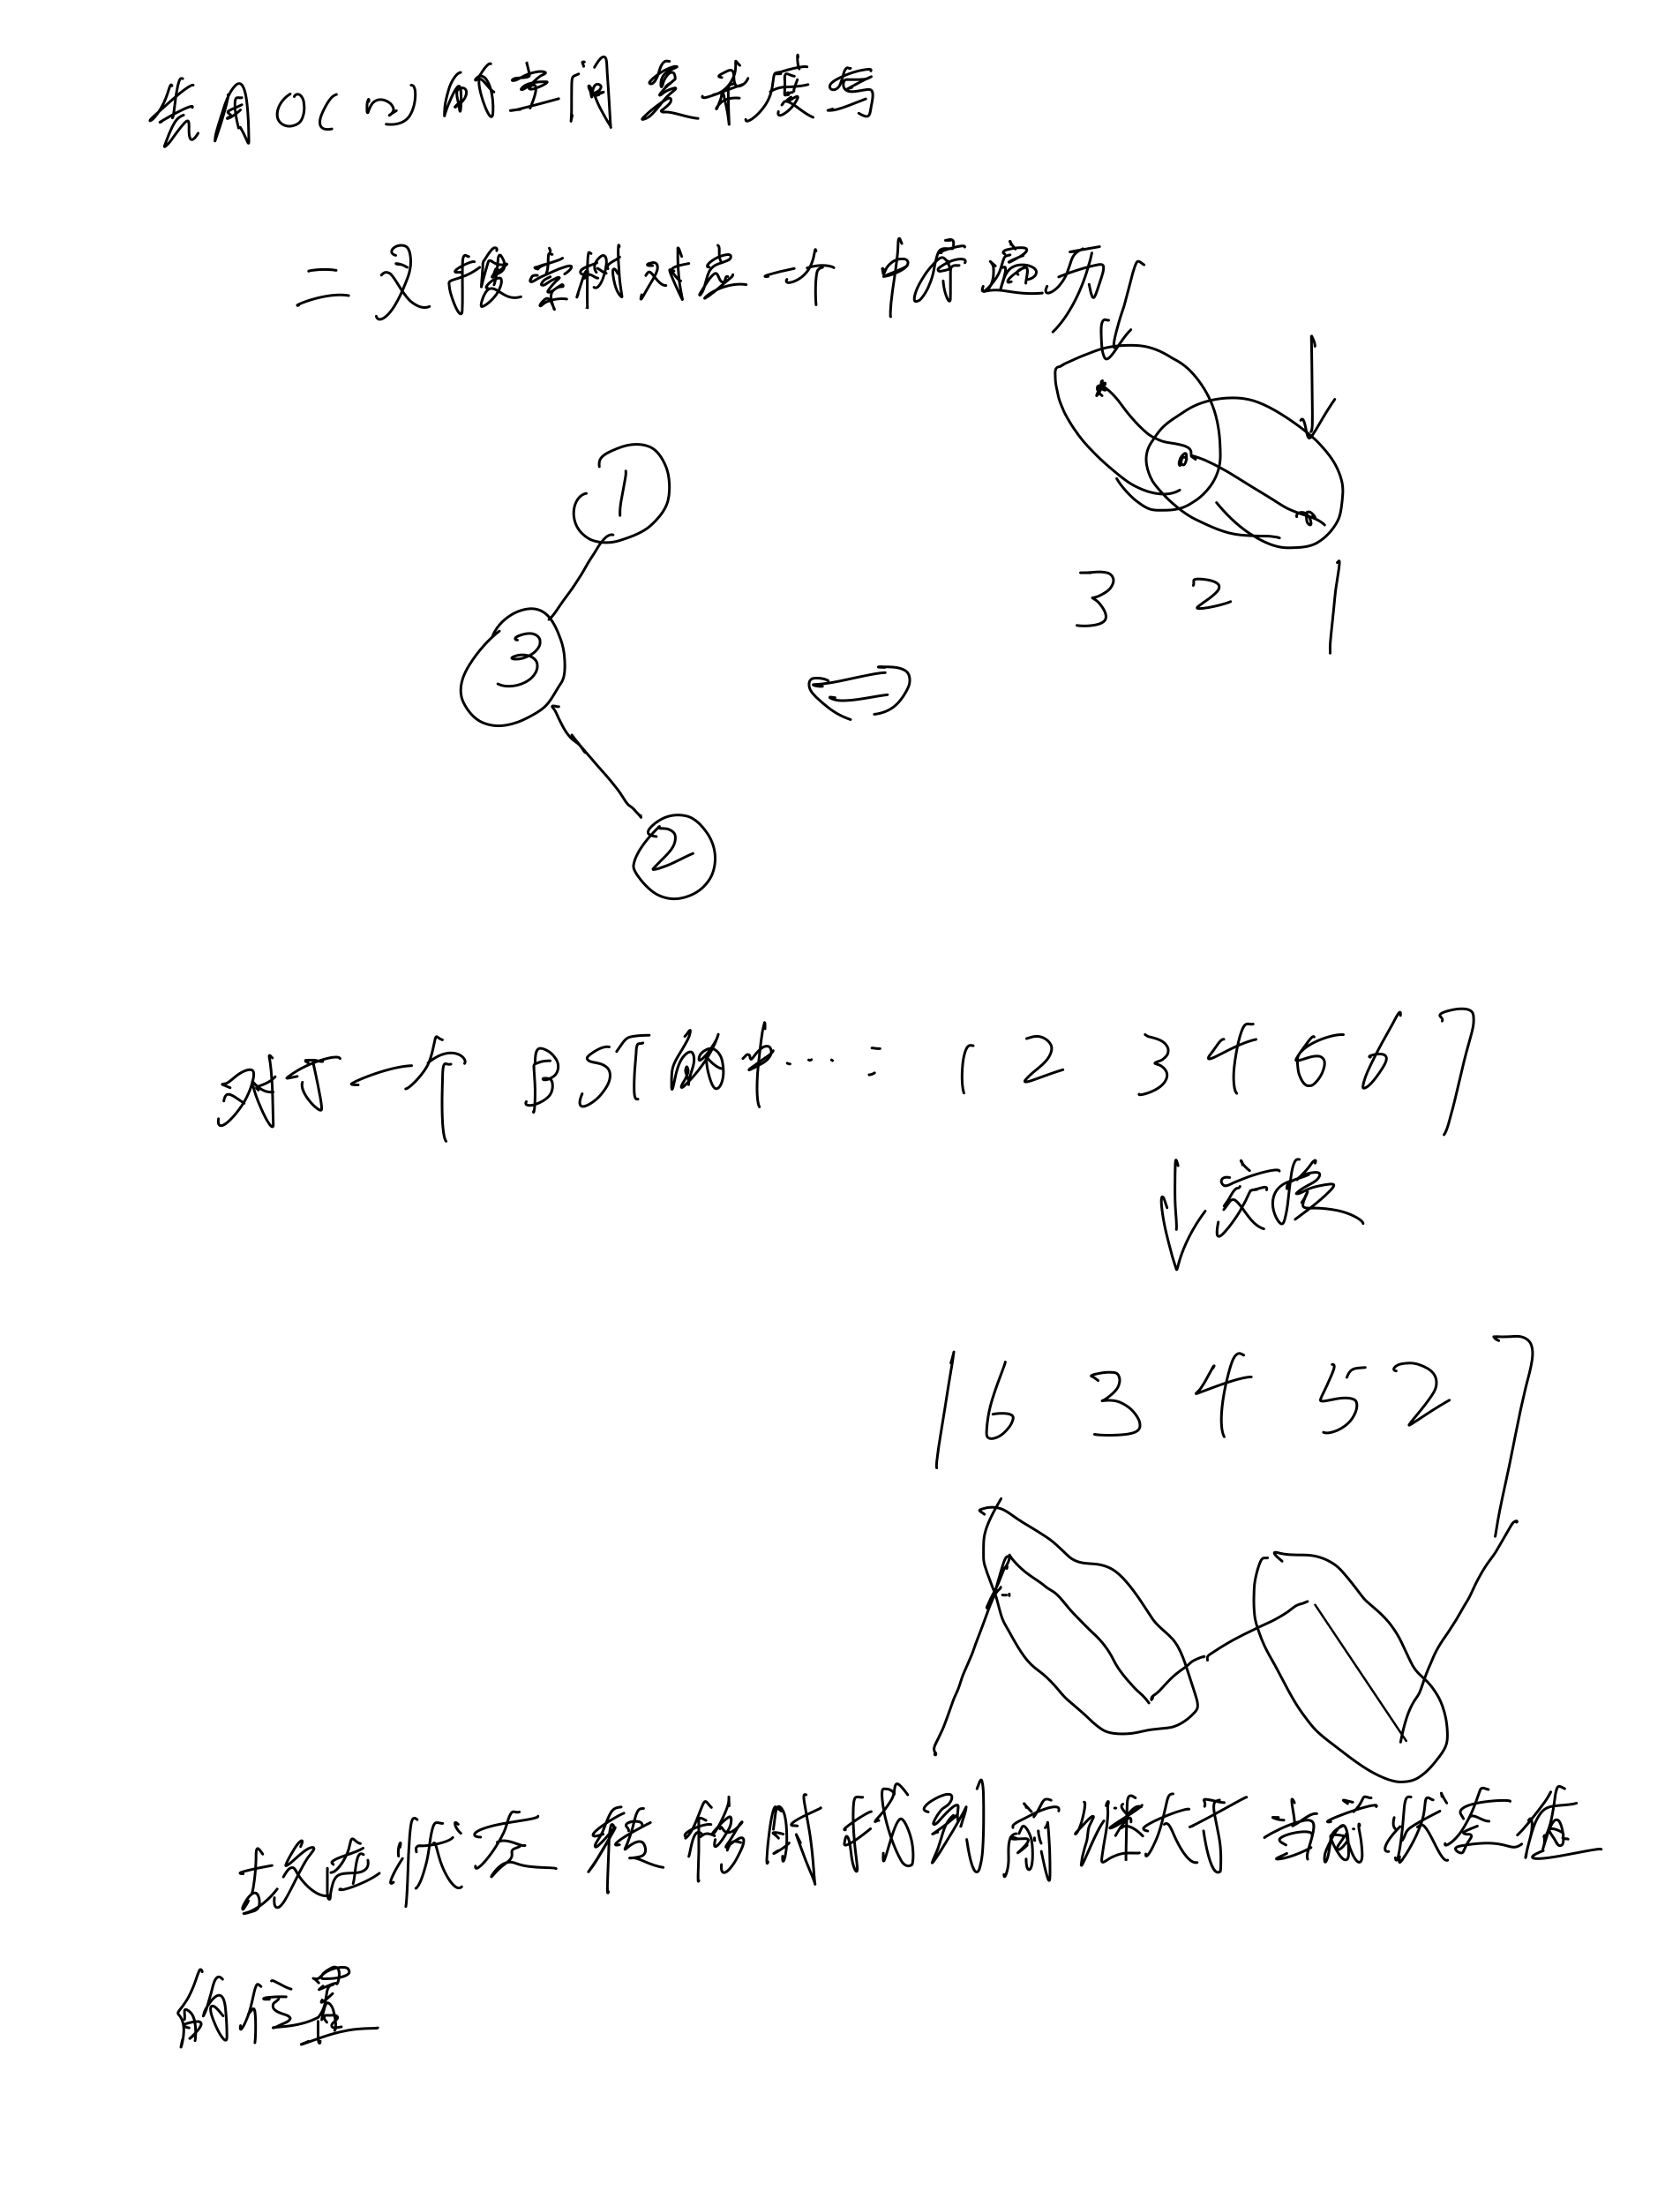 先用O(n)的空间复杂度写
二叉搜索树对应一个中序遍历
1
3
2
3 2 1
对于一个BST的中...: 1 2 3 4 6 6 7
交换
1 6 3 4 5 2 7
找出状态 来移时找到前继大于当前状态值
的位置